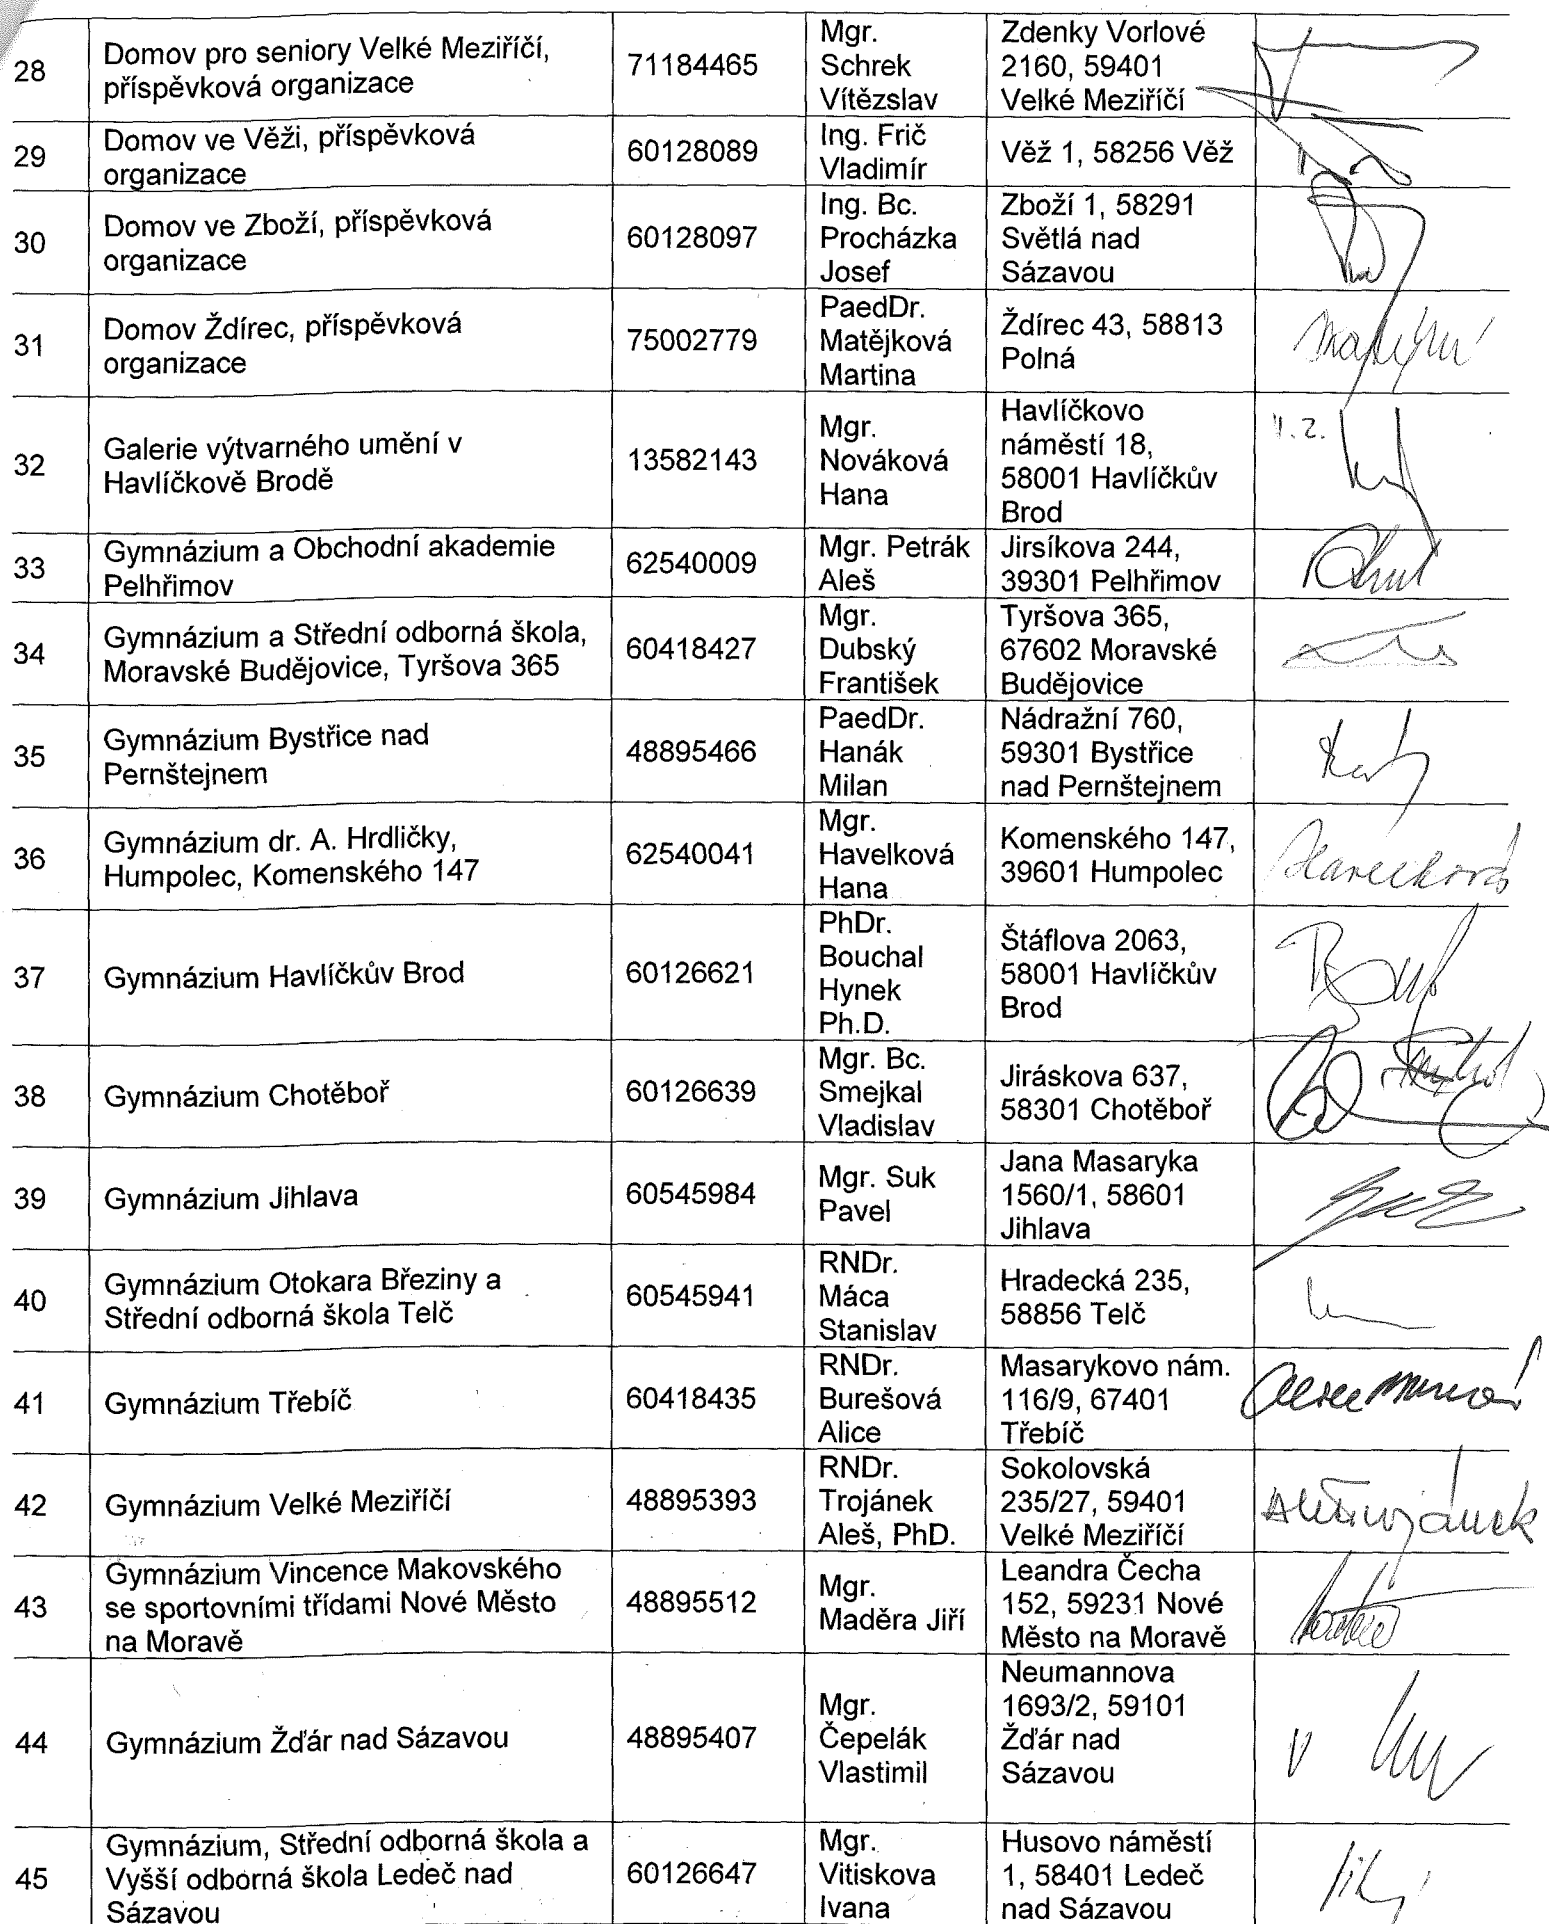 28
Domov pro seniory Velké Meziříčí,
příspěvková organizace
71184465
Mgr.
Schrek
Vítězslav
Zdenky Vorlové
2160, 59401
Velké Meziříčí
29
Domov ve Věži, příspěvková
organizace
60128089
Ing. Frič
Vladimír
Věž 1, 58256 Věž
30
Domov ve Zboží, příspěvková
organizace
60128097
Ing. Bc.
Procházka
Josef
Zboží 1, 58291
Světlá nad
Sázavou
31
Domov Ždírec, příspěvková
organizace
75002779
PaedDr.
Matějková
Martina
Ždírec 43, 58813
Polná
32
Galerie výtvarného umění v
Havlíčkově Brodě
13582143
Mgr.
Nováková
Hana
Havlíčkovo
náměstí 18,
58001 Havlíčkův
Brod
33
Gymnázium a Obchodní akademie
Pelhřimov
62540009
Mgr. Petrák
Aleš
Jirsíkova 244,
39301 Pelhřimov
34
Gymnázium a Střední odborná škola,
Moravské Budějovice, Tyršova 365
60418427
Mgr.
Dubský
František
Tyršova 365,
67602 Moravské
Budějovice
35
Gymnázium Bystřice nad
Pernštejnem
48895466
PaedDr.
Hanák
Milan
Nádražní 760,
59301 Bystřice
nad Pernštejnem
36
Gymnázium dr. A. Hrdličky,
Humpolec, Komenského 147
62540041
Mgr.
Havelková
Hana
Komenského 147,
39601 Humpolec
37
Gymnázium Havlíčkův Brod
60126621
PhDr.
Bouchal
Hynek
Ph.D.
Štáflova 2063,
58001 Havlíčkův
Brod
38
Gymnázium Chotěboř
60126639
Mgr. Bc.
Smejkal
Vladislav
Jiráskova 637,
58301 Chotěboř
39
Gymnázium Jihlava
60545984
Mgr. Suk
Pavel
Jana Masaryka
1560/1, 58601
Jihlava
40
Gymnázium Otokara Březiny a
Střední odborná škola Telč
60545941
RNDr.
Máca
Stanislav
Hradecká 235,
58856 Telč
41
Gymnázium Třebíč
60418435
RNDr.
Burešová
Alice
Masarykovo nám.
116/9, 67401
Třebíč
42
Gymnázium Velké Meziříčí
48895393
RNDr.
Trojánek
Aleš, PhD.
Sokolovská
235/27, 59401
Velké Meziříčí
43
Gymnázium Vincence Makovského
se sportovními třídami Nové Město
na Moravě
48895512
Mgr.
Maděra Jiří
Leandra Čecha
152, 59231 Nové
Město na Moravě
44
Gymnázium Žďár nad Sázavou
48895407
Mgr.
Čepelák
Vlastimil
Neumannova
1693/2, 59101
Žďár nad
Sázavou
45
Gymnázium, Střední odborná škola a
Vyšší odborná škola Ledeč nad
Sázavou
60126647
Mgr.
Vitiskova
Ivana
Husovo náměstí
1, 58401 Ledeč
nad Sázavou